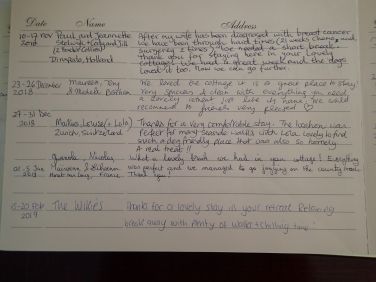 Date Name Address
10-17 nov Paul and Jeannette After my wife has been diagnosed with breast cancer
2018 and Jill we have been through hard times (2 weeks chemo and
surgery 2 times) we needed a short break.
Thank you for staying here in your lovely
Dinxperlo, Holland cottage! We had a great week and the dogs
loved it too. Now we can go further
23-26 December Maureen, Tony We loved the cottage it is a great place to stay
2018 & Michelle Very spacious & clean with everything you need
a lovely cement just like in home. We would
recommend to friends very pleased
27-31 Dec
2018 Markus, Louise (+ Lola) Thanks for a very comfortable stay. The location was
Zurich, Switzerland perfect for many seaside walks with Lola. Lovely to find
such a dog friendly place that was also so homely
A real treat!!
Nicolas, What a lovely break we had in your cottage! Everything
02-5 Jan was perfect and we managed to go jogging on the country roads.
2019 France Thank you!
15-20 Feb The Wilkies Thanks for a lovely stay in your retreat Relaxing
2019 break away with plenty of walks + chilling time!